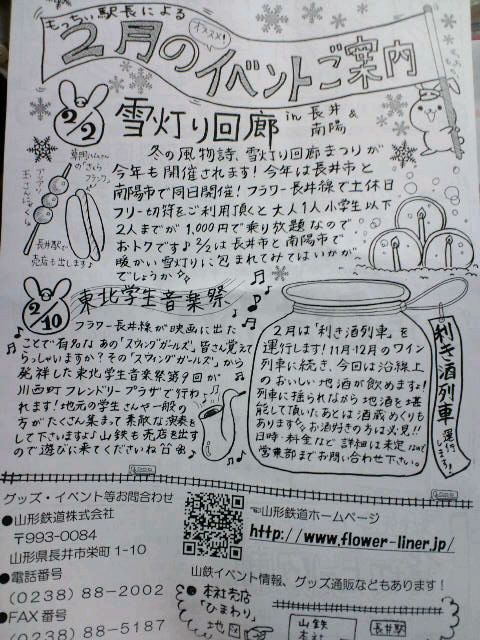 もっちぃ駅長による
オススメ!
2月のイベントご案内
2/2
雪灯り回廊 in 長井&南陽
冬の風物詩、雪灯り回廊まつりが
今年も開催されます!今年は長井市と
南陽市で同日開催!フラワー長井線で土休日
フリー切符をご利用頂くと大人1人小学生以下
2人までが1,000円で乗り放題なので
おトクです♪2/2は長井市と南陽市で
暖かい雪灯りに包まれてみてはいかが
でしょうか
アツアツ
玉こんにゃく
「さくら
フランク」
長井駅で
売店も出します♪
2/10
東北学生音楽祭
フラワー長井線が映画に出た
ことで有名なあの「スウィングガールズ」皆さん覚えて
らっしゃいますか?その「スウィングガールズ」から
発祥した東北学生音楽祭第9回が
川西町フレンドリープラザで行わ
れます!地元の学生さんや一般の
方がたくさん集まって素敵な演奏を
して下さいますよ♪山鉄も売店を出すの
で遊びに来てくださいね
2月は「利き酒列車」を
運行します!11月・12月のワイン
列車に続き、今回は沿線上
のおいしい地酒が飲めますよ!
列車に揺られながら地酒を堪
能して頂いたあとは酒蔵めぐりも
あります お酒好きの方は必見!!
日時・料金など詳細は未定なので
営業部までお問い合わせ下さい。
利き酒列車
運行します!
グッズ・イベント等お問合わせ
●山形鉄道株式会社
〒993-0084
山形県長井市栄町 1-10
●電話番号
(0238) 88-2002
●FAX番号
(0238) 88-5187
山形鉄道ホームページ
http://www.flower-liner.jp/
山鉄イベント情報、グッズ通販などもあります!
本社売店
「ひまわり」
地図
山鉄
本社
長井駅